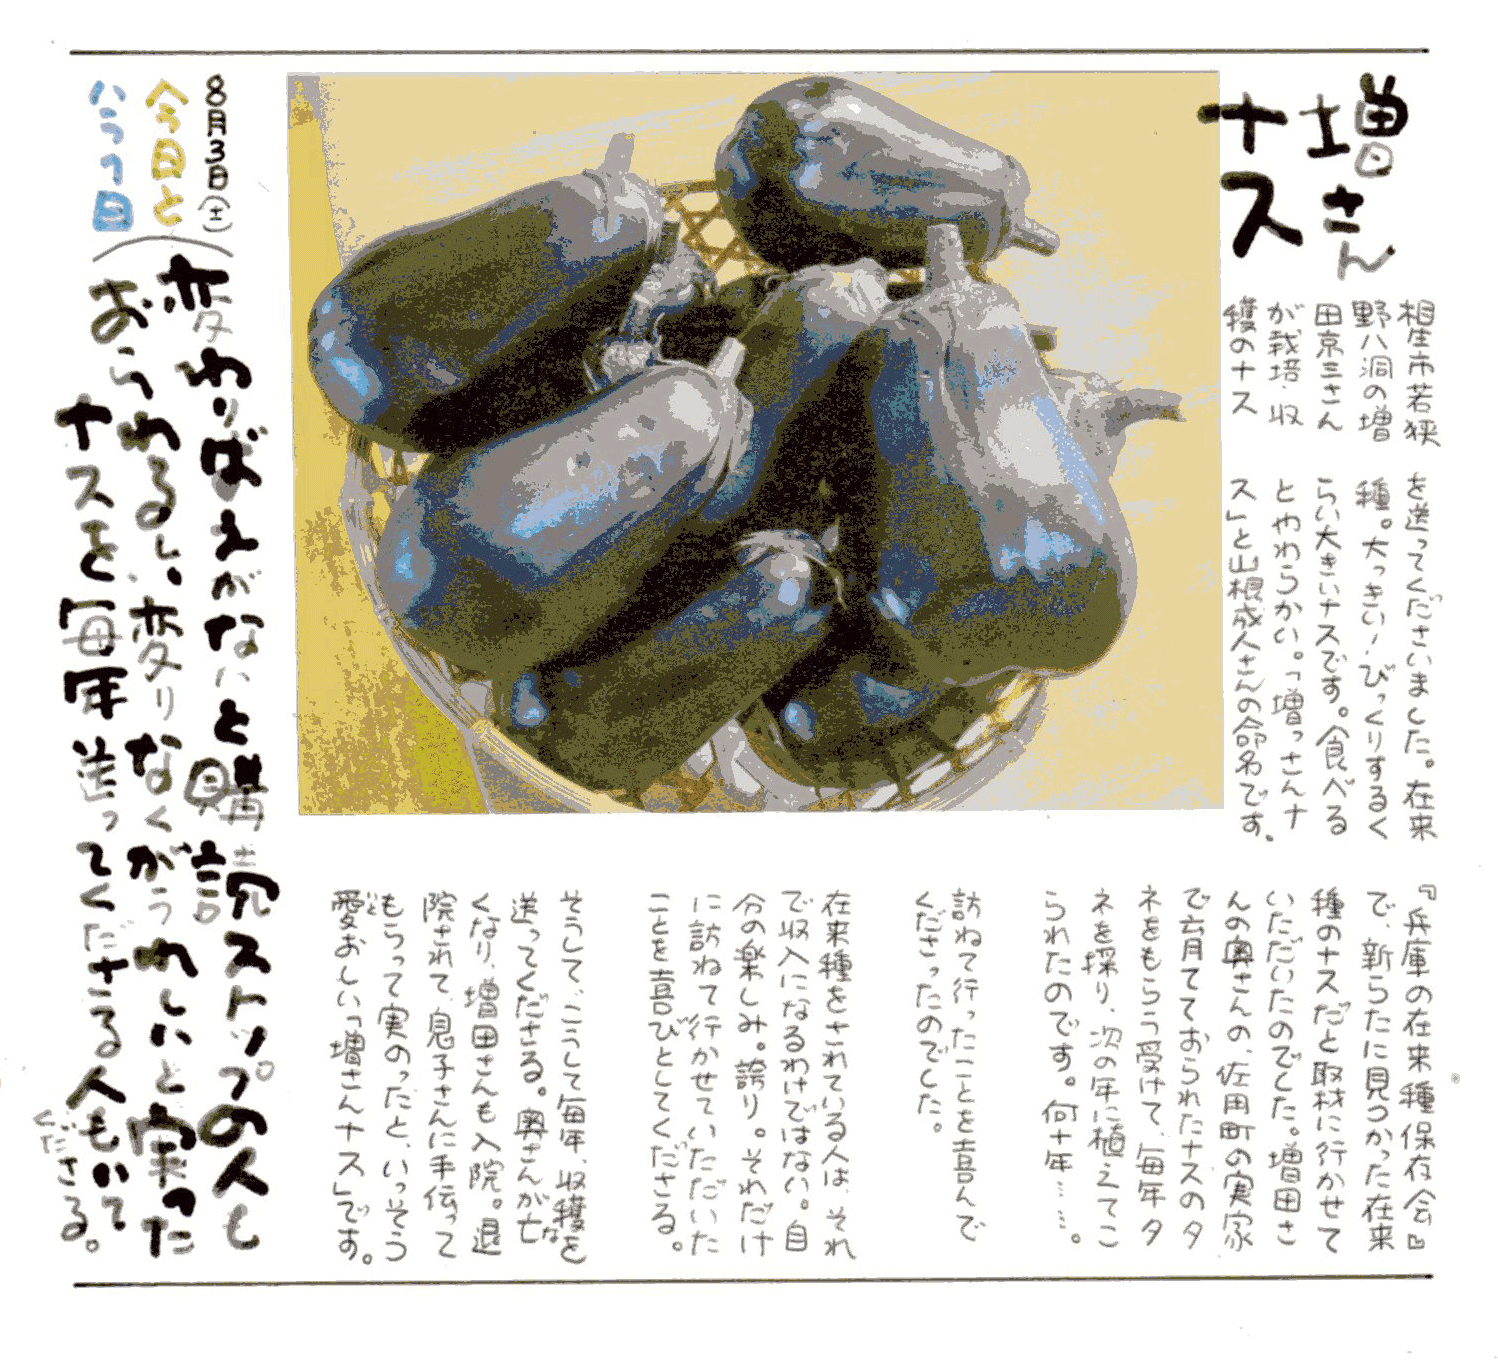 増さん
ナス
相生市若狭
野八洞の増
田京三さん
が栽培・収
穫のナス
を送ってくださいました。在来
種。大っきい!びっくりするく
らい大きいナスです。食べる
とやわらかい。「増っさんナ
ス」と山根成人さんの命名です。
『兵庫の在来種保存会』
で、新らたに見つかった在来
種のナスだと取材に行かせて
いただいたのでした。増田さ
んの奥さんの、佐用町の実家
で育てておられたナスのタ
ネをもらう受けて、毎年タ
ネを採り、次の年に植えてこ
られたのです。何十年……。
訪ねて行ったことを喜んで
くださったのでした。
在来種をされている人は、それ
で収入になるわけではない。自
分の楽しみ。誇り。それだけ
に訪ねて行かせていただいた
ことを喜びとしてくださる。
そうして、こうして毎年、収穫を
送ってくださる。奥さんが亡な
くなり、増田さんも入院。退
院されて、息子さんに手伝って
もらって実のったと、いっそう
愛おしい「増さんナス」です。
8月3日(土)
今日と
いう日
変わりばえがないと購読ストップの人も
おられるし、変りなくがうれしいと実った
ナスを毎年送ってくださる人もいて
くださる。